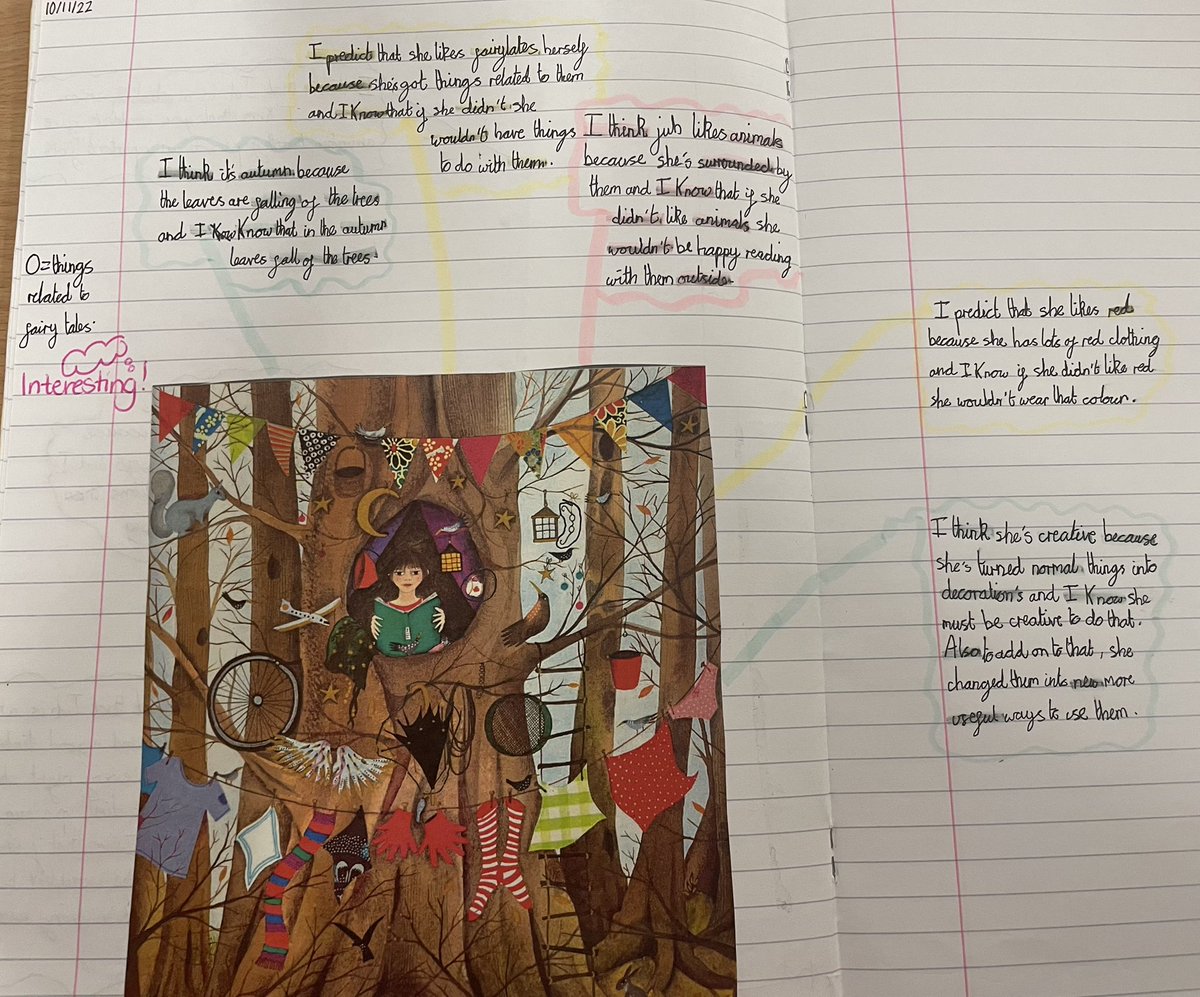 10/11/22
I predict that she likes fairylates herself
because she's got things related to them
and I Know that if she didn't she
wouldn't have things
to do with them.
I think its autumn because
the leaves are falling of the trees
and I Kow Know that in the autumn
leaves fall of the trees.
I think juh likes animals
because she's surrounded by
them and I Know that if she
didn't like animals she
wouldn't be happy reading
with them outside.
O=things
related to
fairy tales.
Interesting!
I predict that she likes red
because she has lots of red clothing
and I Know if she didn't like red
she wouldn't wear that colour.
I think she's creative because
she's turned normal things into
decoration's and I Know she
must be creative to do that.
Also to add on to that, she
changed them into new more
useful ways to use them.